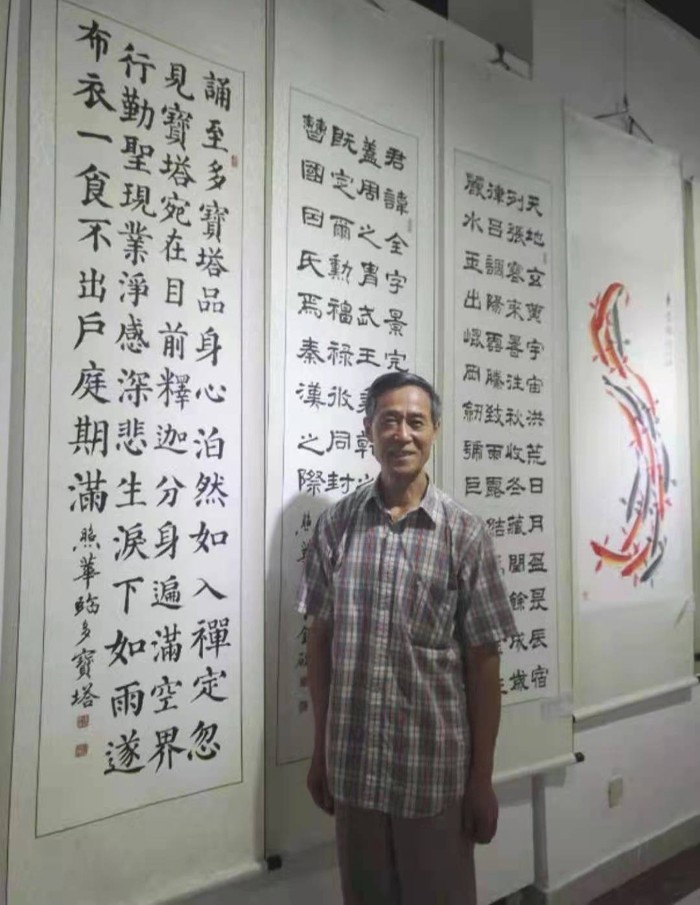 誦至多寶塔品身心泊然如入禪定忽
見寶塔宛在目前釋迦分身遍滿空界
行勤聖現業淨感深悲生淚下如雨遂
布衣一食不出戶庭期滿
熙華臨多寶塔
君諱全字景完
蓋周之胄武王
既定爾勳福祿攸同封
曁國因氏焉秦漢之際
天地玄黃宇宙洪荒日月盈昃辰宿
列張寒來暑往秋收冬藏閏餘成歲
律呂調陽雲騰致雨露結
麗水玉出崐岡劒號巨